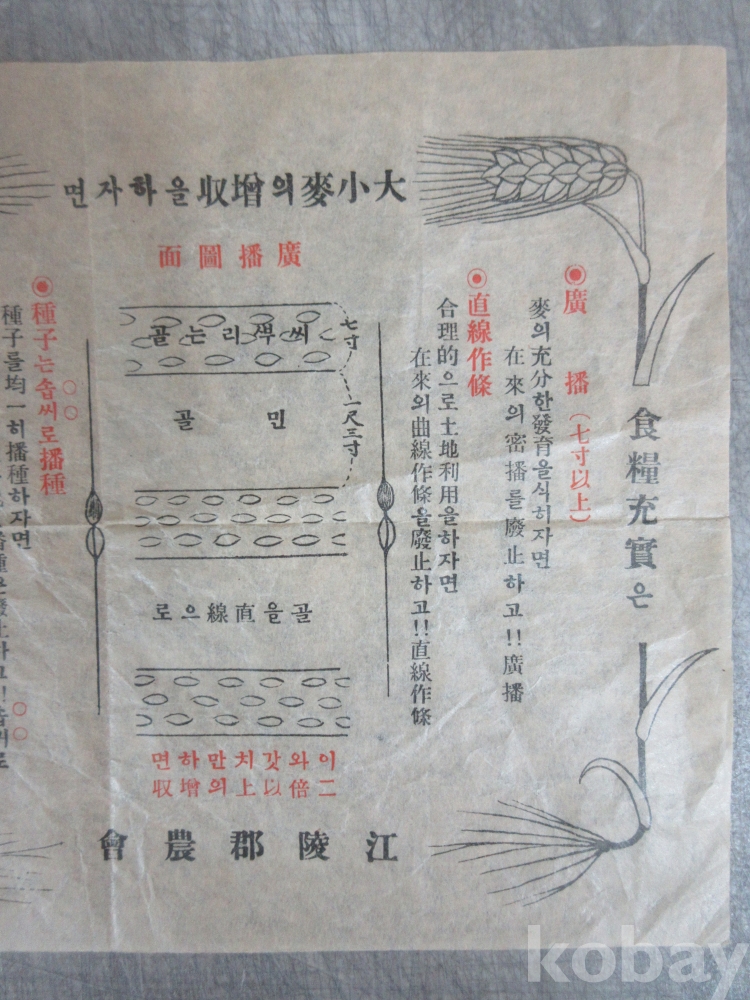 食糧充實은
大小麥의增収을하자면
◉廣播(七寸以上)
麥의充分한發育을식히자면
在來의密播를廢止하고!!廣播
◉直線作條
合理的으로土地利用을하자면
在來의曲線作條을廢止하고!!直線作條
廣播圖面
씨ᄲᅮ리는골
七寸
一尺三寸
민골
골을直線으로
이와갓치만하면
二倍以上의增収
◉種子는솝씨로播種
種子를均一히播種하자면
江陵郡農會
kobay